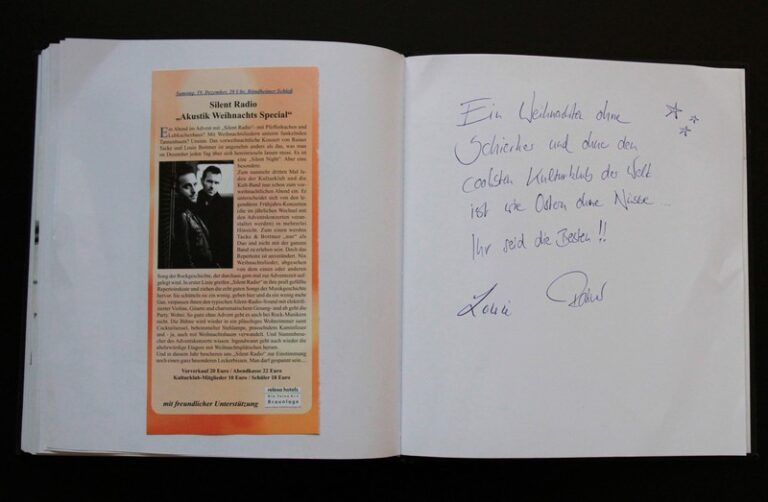 Samstag, 19. Dezember, 20 Uhr, Bündheimer Schloß
Silent Radio
„Akustik Weihnachts Special“
Ein Abend im Advent mit „Silent Radio“- mit Pfefferkuchen und
Lebkuchenhaus? Mit Weihnachtsliedern unterm funkelnden
Tannenbaum? Unsinn. Das vorweihnachtliche Konzert von Rainer
Tacke und Louie Bottmer ist angenehm anders als das, was man
im Dezember jeden Tag über sich
eine „Silent Night“. Aber eine
besondere.
Zum nunmehr dritten Mal la-
den der Kulturklub und die
Kult-Band nun schon zum vor-
weihnachtlichen Abend ein. Er
unterscheidet sich von den le-
gendären Frühjahrs-Konzerten
(die im jährlichen Wechsel mit
den Adventskonzerten veran-
staltet werden) in mehrerlei
Hinsicht. Zum einen werden
Tacke & Bottmer „nur“ als
Duo und nicht mit der ganzen
Band zu erleben sein. Doch das
Repertoire ist unverändert. Nix
Weihnachtslieder, abgesehen
von dem einen oder anderen
Song der Rockgeschichte, der durchaus gern mal zur Adventszeit auf-
gelegt wird. In erster Linie greifen „Silent Radio“ in ihre prall gefüllte
Repertoirekiste und ziehen die echt guten Songs der Musikgeschichte
hervor. Sie schütteln sie ein wenig, geben hier und da ein wenig mehr
Gas, verpassen ihnen den typischen Silent-Radio-Sound mit elektrifi-
zierter Violine, Gitarre und charismatischem Gesang- und ab geht die
Party. Wobei: So ganz ohne Advent geht es auch bei Rock-Musikern
nicht. Die Bühne wird wieder in ein plüschiges Wohnzimmer samt
Cocktailsessel, Stehlampe, prasselndem Kaminfeuer
und - ja, auch mit Weihnachtsbaum verwandelt. Und Stammbesu-
cher des Adventskonzerts wissen: Irgendwann geht auch wieder die
ehrwürdige Etagere mit Weihnachtsplätzchen herum.
Und in diesem Jahr bescheren uns „Silent Radio“ zur Einstimmung
noch einen ganz besonderen Leckerbissen. Man darf gespannt sein...
Vorverkauf 20 Euro / Abendkasse 22 Euro
Kulturklub-Mitglieder 18 Euro / Schüler 10 Euro
mit freundlicher Unterstützung
relexa hotels
Braunlage
Ein Weihnachten ohne
Schierker und ohne den
coolsten Kulturklub der Welt
ist wie Ostern ohne Nüsse...
Ihr seid die Besten!!
Louie